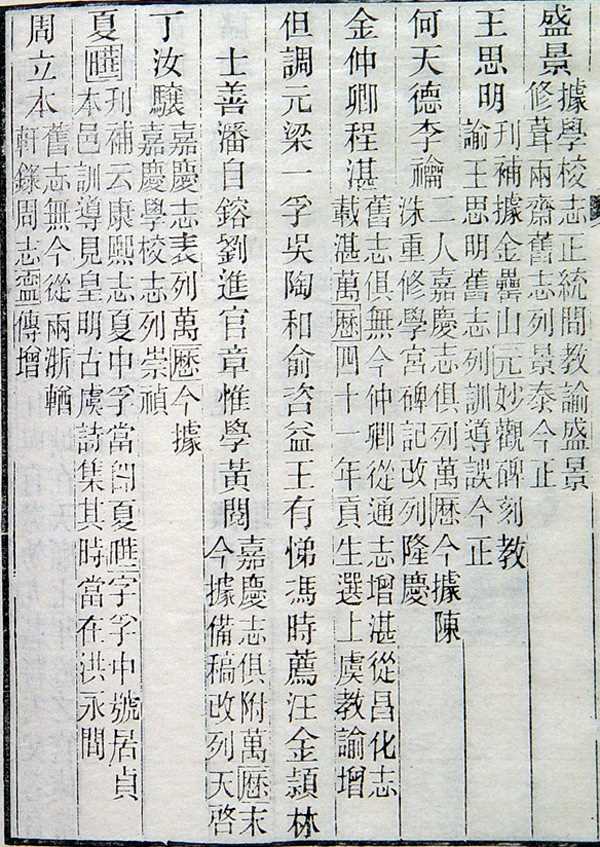 盛景
據學校志正統間教諭盛景
修葺兩齋舊志列景泰今正
王思明
刊補據金罍山元妙觀碑刻教
諭王思明舊志列訓導誤今正
何天德李禴
二人嘉慶志俱列萬厯今據陳
洙重修學宮碑記改列隆慶
金仲卿程湛
舊志俱無今仲卿從通志增湛從昌化志
載湛萬厯四十一年貢生選上虞教諭增
但調元梁一孚吳陶和俞咨益王有悌馮時薦汪金頴林
士善潘自鎔劉進官章惟學黃閱
嘉慶志俱附萬厯末
今據備稿改列天啓
丁汝驤
嘉慶志表列萬厯今據
嘉慶學校志列崇禎
夏曄
刊補云康熙志夏中孚當卽夏曄字孚中號居貞
本邑訓導見皇明古虞詩集其時當在洪永間
周立本
舊志無今從兩浙輶
軒錄周志傳增